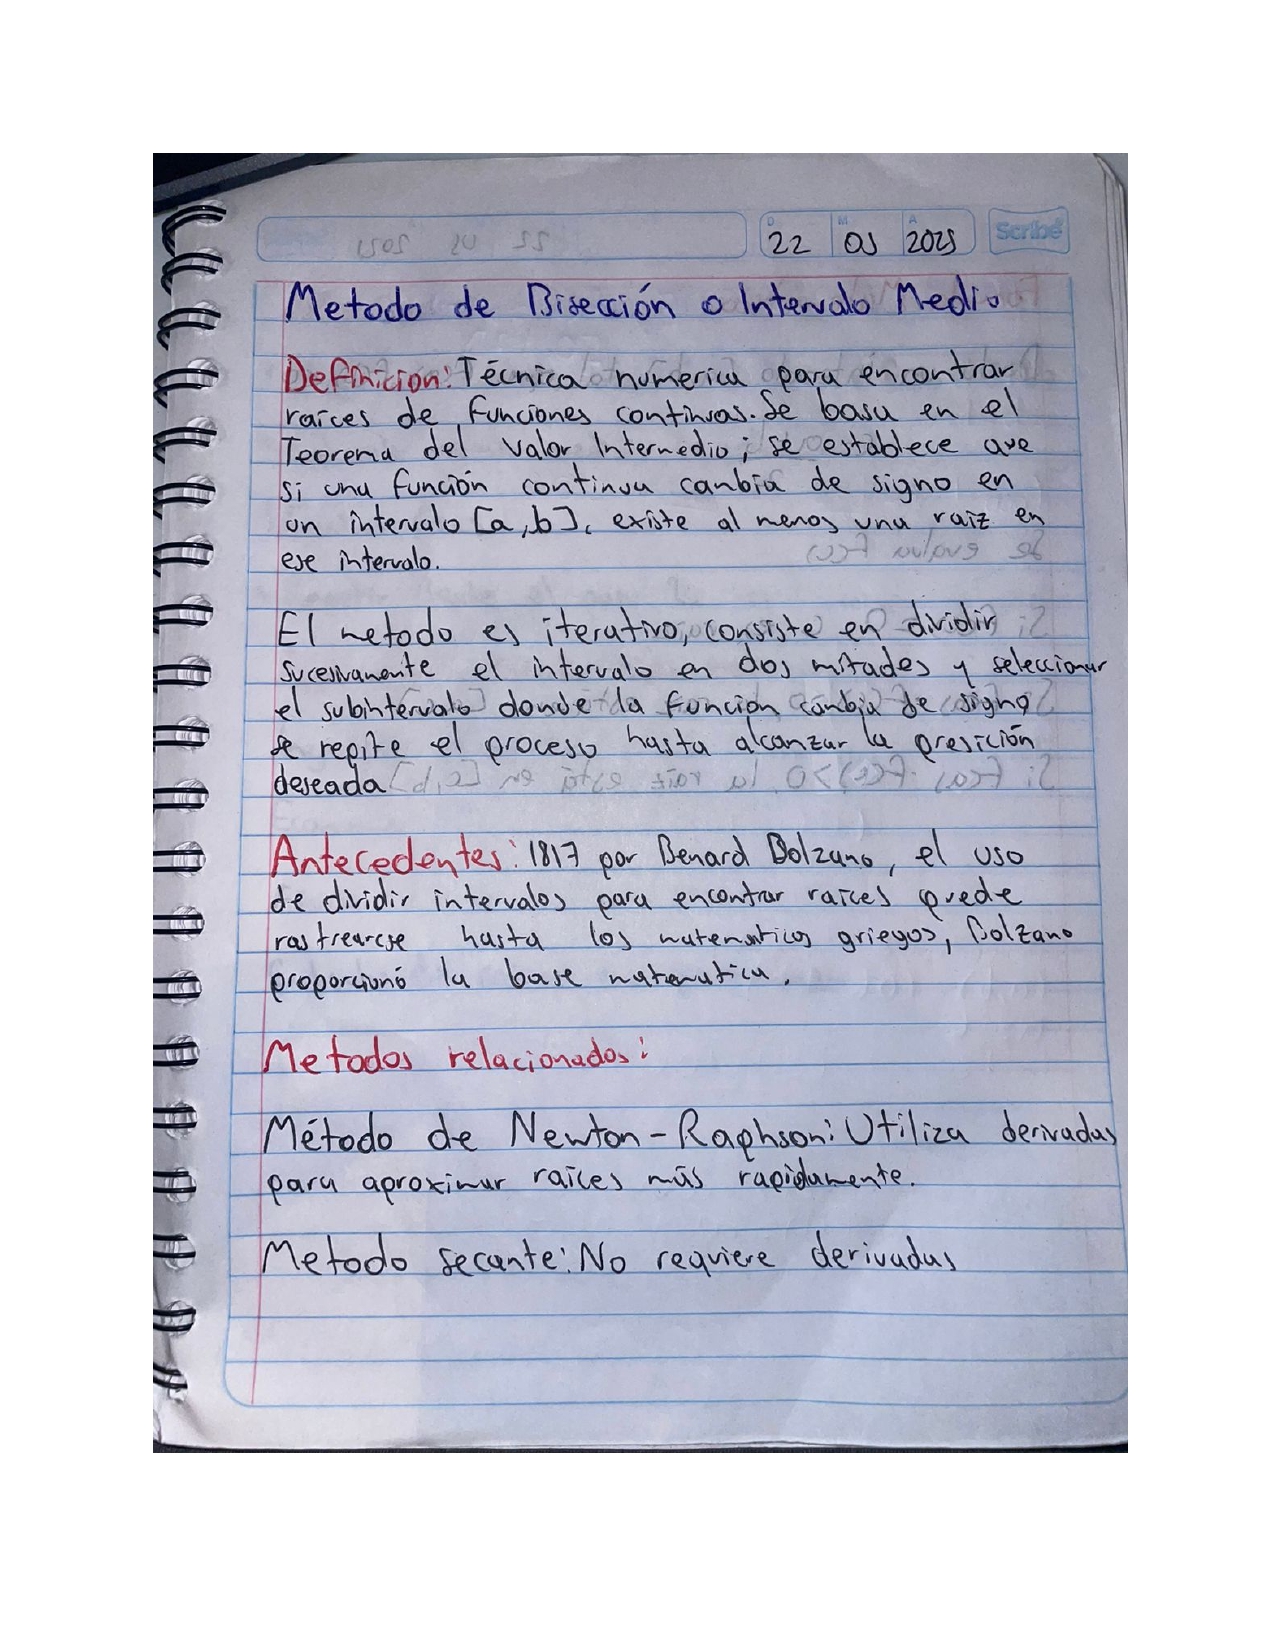 D M A
22 05 2025 Scribe
Metodo de Bisección o Intervalo Medio
Definicion: Técnica numerica para encontrar
raíces de funciones continuas. Se basa en el
Teorema del Valor Intermedio; se establece que
si una función continua cambia de signo en
un intervalo [a,b], existe al menos una raíz en
ese intervalo.
El metodo es iterativo, consiste en dividir
sucesivamente el intervalo en dos mitades y seleccionar
el subintervalo donde la función cambia de signo
se repite el proceso hasta alcanzar la presición
deseada
Antecedentes: 1817 por Benard Bolzano, el uso
de dividir intervalos para encontrar raíces puede
rastrearcse hasta los matematicos griegos, Bolzano
proporcionó la base matematica.
Metodos relacionados:
Método de Newton-Raphson: Utiliza derivadas
para aproximar raíces más rapidamente.
Metodo secante: No requiere derivadas